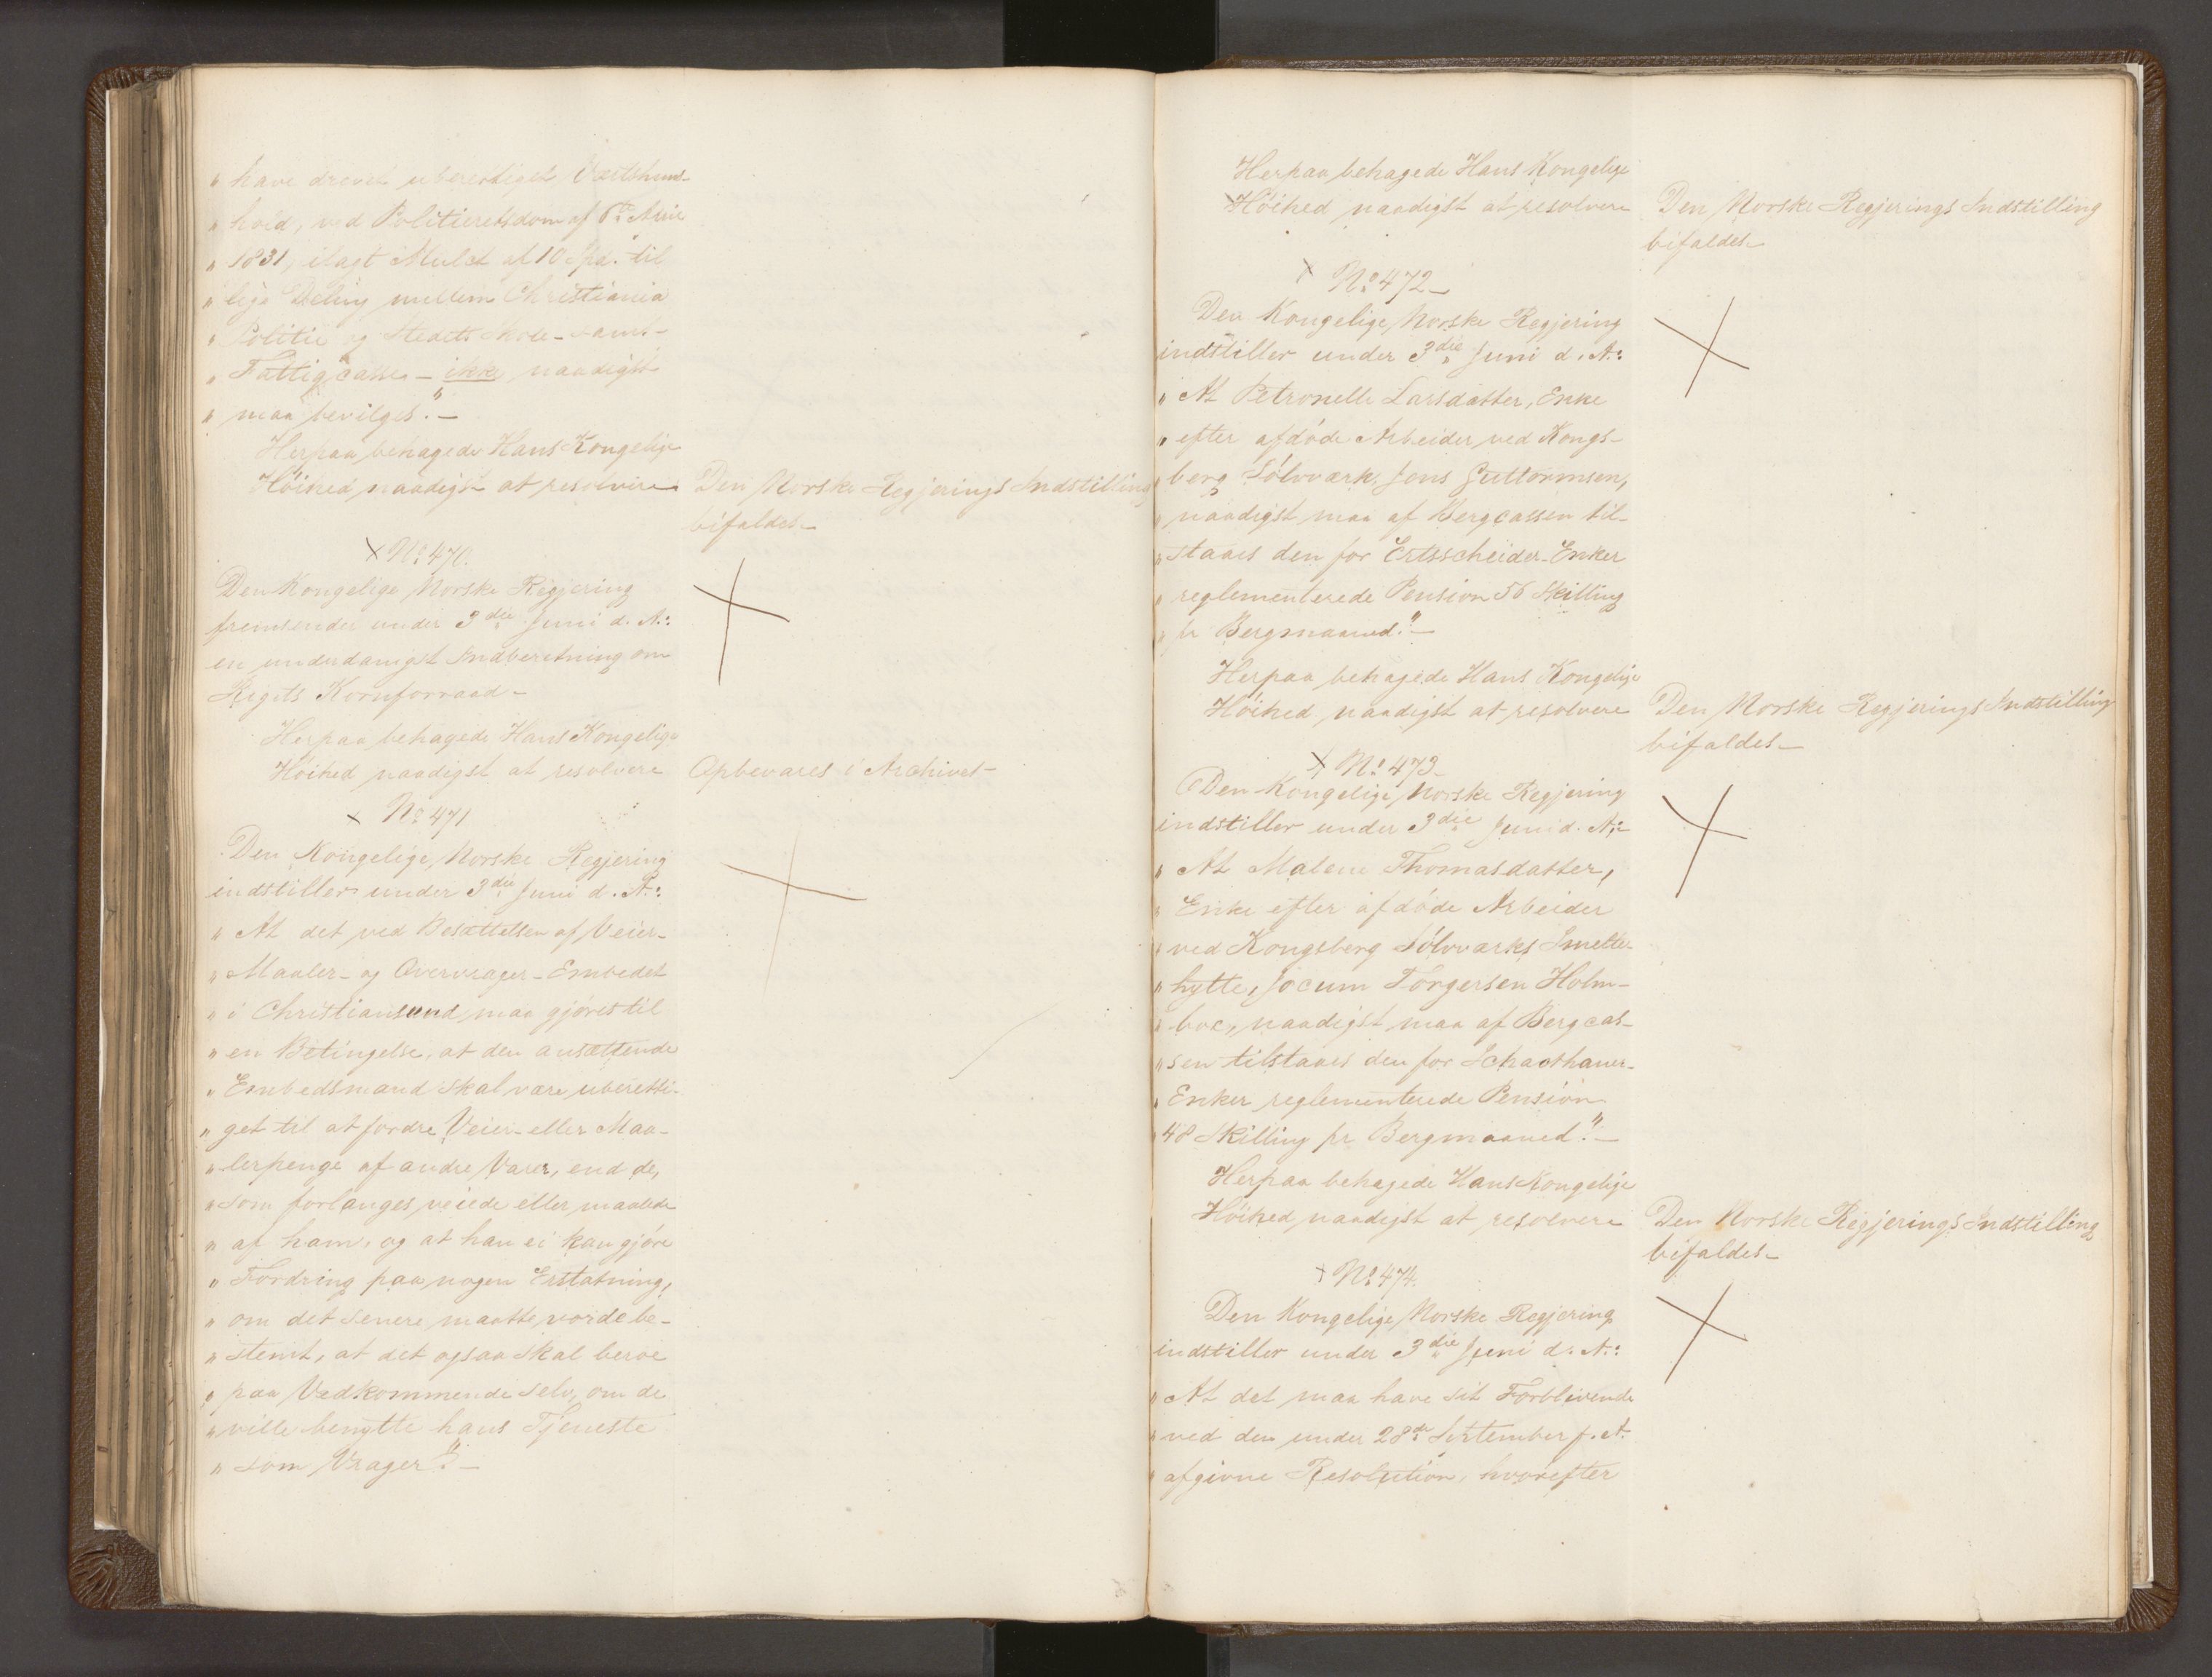 " have drevet uberettiget Værtshuus-
" hold, ved Politieretsdom af 6te April
" 1831, ilagt Mulct af 10 Spd. til
" lige Deling mellem Christiania
" Politie og Stedets Skole- samt
" Fattigcasse - ikke naadigst
" maa bevilges." -
Herpaa behagede Hans Kongelige
Höihed naadigst at resolvere
Den Norske Regjerings Indstilling
bifaldes -
x No 470.
Den Kongelige Norske Regjering
fremsender under 3die Juni d. A.:
en underdanigst Indberetning om
Rigets Kornforraad -
Herpaa behagede Hans Kongelige
Höihed naadigst at resolvere
Opbevares i Archivet -
x No 471
Den Kongelige Norske Regjering
indstiller under 3die Juni d. A.:
" At det ved Besættelsen af Veier-
" Maaler- og Overvrager-Embedet
" i Christiansund maa gjöres til
" en Betingelse, at den ansættende
" Embedsmand skal være uberetti-
" get til at fordre Veier- eller Maa-
" lerpenge af andre Varer, end de,
" som forlanges veiede eller maalede
" af ham, og at han ei kan gjöre
" Fordring paa nogen Erstatning,
" om det senere maatte vorde be-
" stemt, at det ogsaa skal beroe
" paa Vedkommende selv, om de
" ville benytte hans Tjeneste
" som Vrager." -
Herpaa behagede Hans Kongelige
Höihed naadigst at resolvere
Den Norske Regjerings Indstilling
bifaldes -
x No 472 -
Den Kongelige Norske Regjering
indstiller under 3die Juni d. A.:
" At Petronelle Larsdatter, Enke
" efter afdöde Arbeider ved Kongs-
" berg Sölvværk, Jens Guttormsen,
" naadigst maa af Bergcassen til-
" staaes den for Ertsscheider-Enker
" reglementerede Pension 56 Skilling
" pr Bergmaaned." -
Herpaa behagede Hans Kongelige
Höihed naadigst at resolvere
Den Norske Regjerings Indstilling
bifaldes -
x No 473 -
Den Kongelige Norske Regjering
indstiller under 3die Juni d. A.:
" At Malene Thomasdatter,
" Enke efter afdöde Arbeider
" ved Kongsberg Sölvværks Smelte-
" hytte, Jocum Torgersen Holm-
" boe, naadigst maa af Bergcas-
" sen tilstaaes den for Schacthauer-
" Enker reglementerede Pension
" 48 Skilling pr Bergmaaned." -
Herpaa behagede Hans Kongelige
Höihed naadigst at resolvere
Den Norske Regjerings Indstilling
bifaldes -
x No 474.
Den Kongelige Norske Regjering
indstiller under 3die Juni d. A.:
" At det maa have sit Forblivende
" ved den under 28de September f. A.
" afgivne Resolution, hvorefter